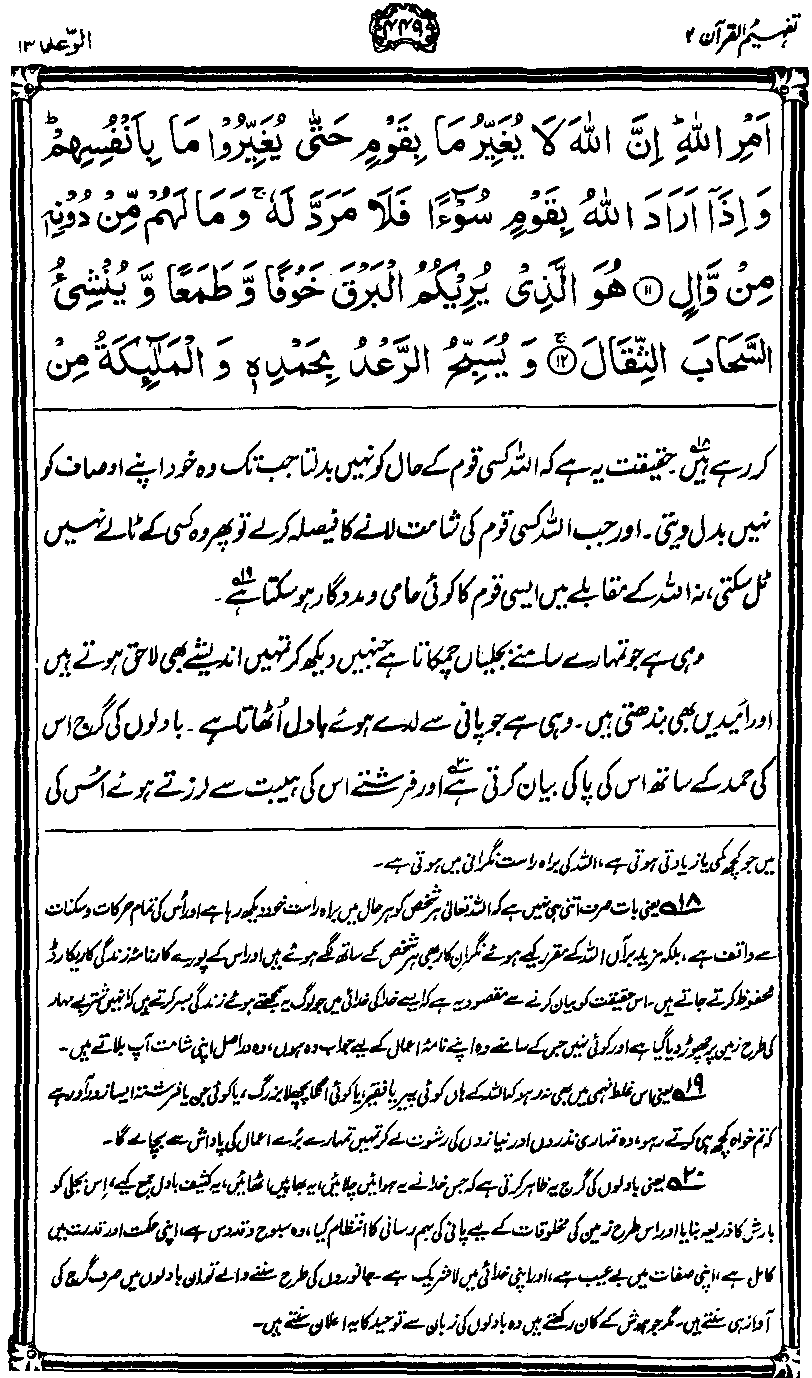 تفہیم القرآن ۲
۴۴۹
الرّعد ۱۳
اَمْرِ اللّٰهِ ؕ اِنَّ اللّٰهَ لَا يُغَيِّرُ مَا بِقَوْمٍ حَتّٰى يُغَيِّرُوْا مَا بِاَنْفُسِهِمْ ؕ
وَ اِذَاۤ اَرَادَ اللّٰهُ بِقَوْمٍ سُوْٓءًا فَلَا مَرَدَّ لَهٗ ۚ وَ مَا لَهُمْ مِّنْ دُوْنِهٖ
مِنْ وَّالٍ ۝۱۱ هُوَ الَّذِیْ يُرِيْكُمُ الْبَرْقَ خَوْفًا وَّ طَمَعًا وَّ يُنْشِئُ
السَّحَابَ الثِّقَالَ ۝۱۲ ۚ وَ يُسَبِّحُ الرَّعْدُ بِحَمْدِهٖ وَ الْمَلٰٓئِكَةُ مِنْ
کر رہے ہیں۱۸۔ حقیقت یہ ہے کہ اللہ کسی قوم کے حال کو نہیں بدلتا جب تک وہ خود اپنے اوصاف کو
نہیں بدل دیتی۔ اور جب اللہ کسی قوم کی شامت لانے کا فیصلہ کر لے تو پھر وہ کسی کے ٹالے نہیں
ٹل سکتی، نہ اللہ کے مقابلے میں ایسی قوم کا کوئی حامی و مددگار ہو سکتا ہے۱۹۔
وہی ہے جو تمہارے سامنے بجلیاں چمکاتا ہے جنہیں دیکھ کر تمہیں اندیشے بھی لاحق ہوتے ہیں
اور امیدیں بھی بندھتی ہیں۔ وہی ہے جو پانی سے لدے ہوئے بادل اُٹھاتا ہے۔ بادلوں کی گرج اس
کی حمد کے ساتھ اس کی پاکی بیان کرتی ہے۲۰ اور فرشتے اس کی ہیبت سے لرزتے ہوئے اُس کی
میں جو کچھ کمی یا زیادتی ہوتی ہے، اللہ کی براہ راست نگرانی میں ہوتی ہے۔
۱۸ یعنی بات صرف اتنی ہی نہیں ہے کہ اللہ تعالیٰ ہر شخص کو ہر حال میں براہ راست خود دیکھ رہا ہے اور اُس کی تمام حرکات و سکنات
سے واقف ہے، بلکہ مزید برآں اللہ کے مقرر کیے ہوئے نگران کار بھی ہر شخص کے ساتھ لگے ہوئے ہیں اور اس کے پورے کارنامۂ زندگی کا ریکارڈ
محفوظ کرتے جاتے ہیں۔ اس حقیقت کو بیان کرنے سے مقصود یہ ہے کہ ایسے خدا کی خدائی میں جو لوگ یہ سمجھتے ہوئے زندگی بسر کرتے ہیں کہ انہیں شتر بے مہار
کی طرح زمین پر چھوڑ دیا گیا ہے اور کوئی نہیں جس کے سامنے وہ اپنے نامۂ اعمال کے لیے جواب دہ ہوں، وہ دراصل اپنی شامت آپ بلاتے ہیں۔
۱۹ یعنی اس غلط فہمی میں بھی نہ رہو کہ اللہ کے ہاں کوئی پیر یا فقیر، یا کوئی اگلا پچھلا بزرگ، یا کوئی جن یا فرشتہ ایسا زور آور ہے
کہ تم خواہ کچھ ہی کرتے رہو، وہ تمہاری نذروں اور نیازوں کی رشوت لے کر تمہیں تمہارے بُرے اعمال کی پاداش سے بچا لے گا۔
۲۰ یعنی بادلوں کی گرج یہ ظاہر کرتی ہے کہ جس خدا نے یہ ہوائیں چلائیں، یہ بھاپیں اٹھائیں، یہ کثیف بادل جمع کیے، اِس بجلی کو
بارش کا ذریعہ بنایا اور اس طرح زمین کی مخلوقات کے لیے پانی کی بہم رسانی کا انتظام کیا، وہ سبوح و قدوس ہے، اپنی حکمت اور قدرت میں
کامل ہے، اپنی صفات میں بے عیب ہے، اور اپنی خدائی میں لاشریک ہے۔ جانوروں کی طرح سننے والے تو ان بادلوں میں صرف گرج کی
آواز ہی سنتے ہیں۔ مگر جو ہوش کے کان رکھتے ہیں وہ بادلوں کی زبان سے توحید کا یہ اعلان سنتے ہیں۔